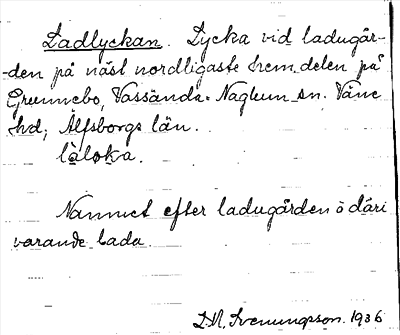 Ladlyckan. Lycka vid ladugår-
-den på näst nordligaste hem.delen på
Grunnebo, Vassända-Naglum sn. Väne
hd, Älfsborgs län.
låloka.
Namnet efter ladugården o däri
varande lada.
D.N. Svenungsson. 1936